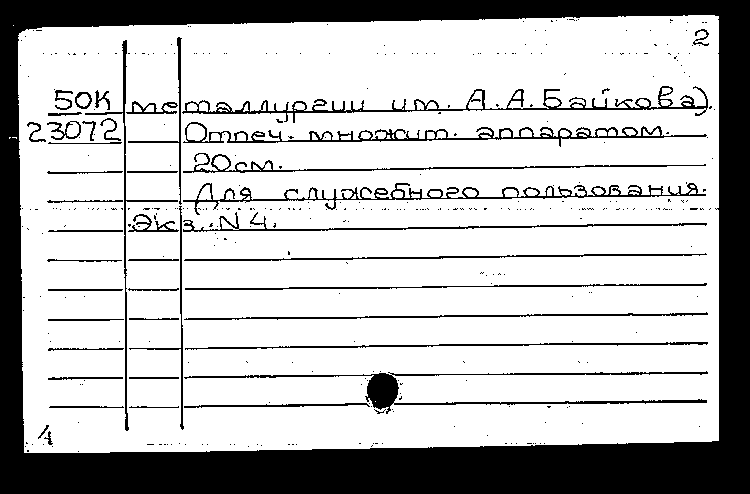 2
50К металлургии им. А.А.Байкова).
23072 Отпеч. множит. аппаратом.
20см.
Для служебного пользования.
Экз. N 4.
4